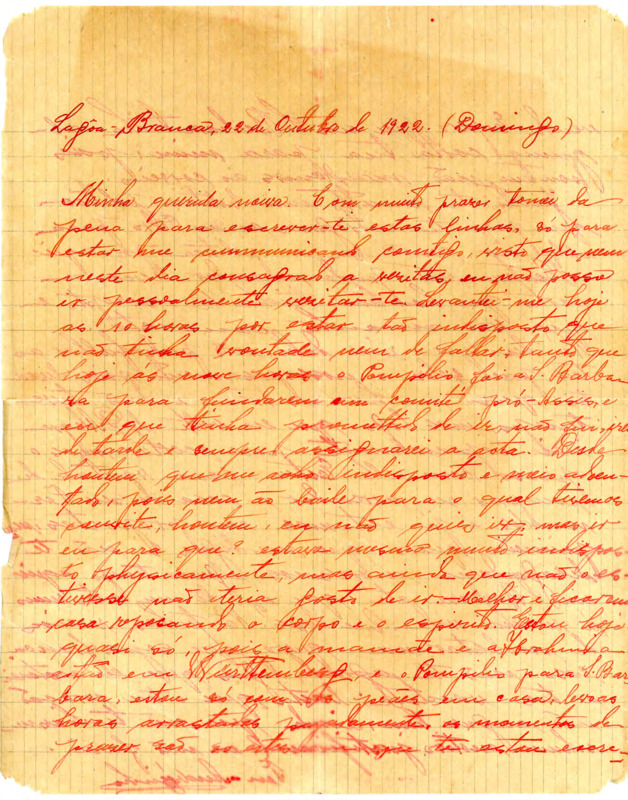 Lagôa-Branca, 22 de Outubro de 1922. (Domingo)
Minha querida noiva. Com muito prazer tomei da
pena para escrever-te estas linhas, só para
estar me communicando comtigo, visto que nem
neste dia consagrado a visitas, eu não posso
ir pessoalmente visitar-te. Levantei-me hoje
as 10 horas por estar tão indisposto que
não tinha vontade nem de fallar, tanto que
hoje ás nove horas o Pompilio foi a S. Barba
ra para fundarem um comité pró-Assis, e
eu que tinha promettido de ir, não fui, irei
de tarde e sempre assignarei a acta. Desde
hontem que me acho indisposto e meio adoen-
tado, pois nem ao baile para o qual tivemos
convite, hontem, eu não quis ir, mas ir
eu para que? estava mesmo muito indispos
to physicamente, mas ainda que não o es-
tivesse não teria gosto de ir. Melhor é ficar em
casa repousando o corpo e o espirito. Estou hoje
quasi só, pois a mamãe e a
estão em Württemberg, e o Pompilio para S. Bar
bara, estou só com os peões em casa, levo as
horas arrastadas, os momentos de
prazer são só estes em que te estou escre-